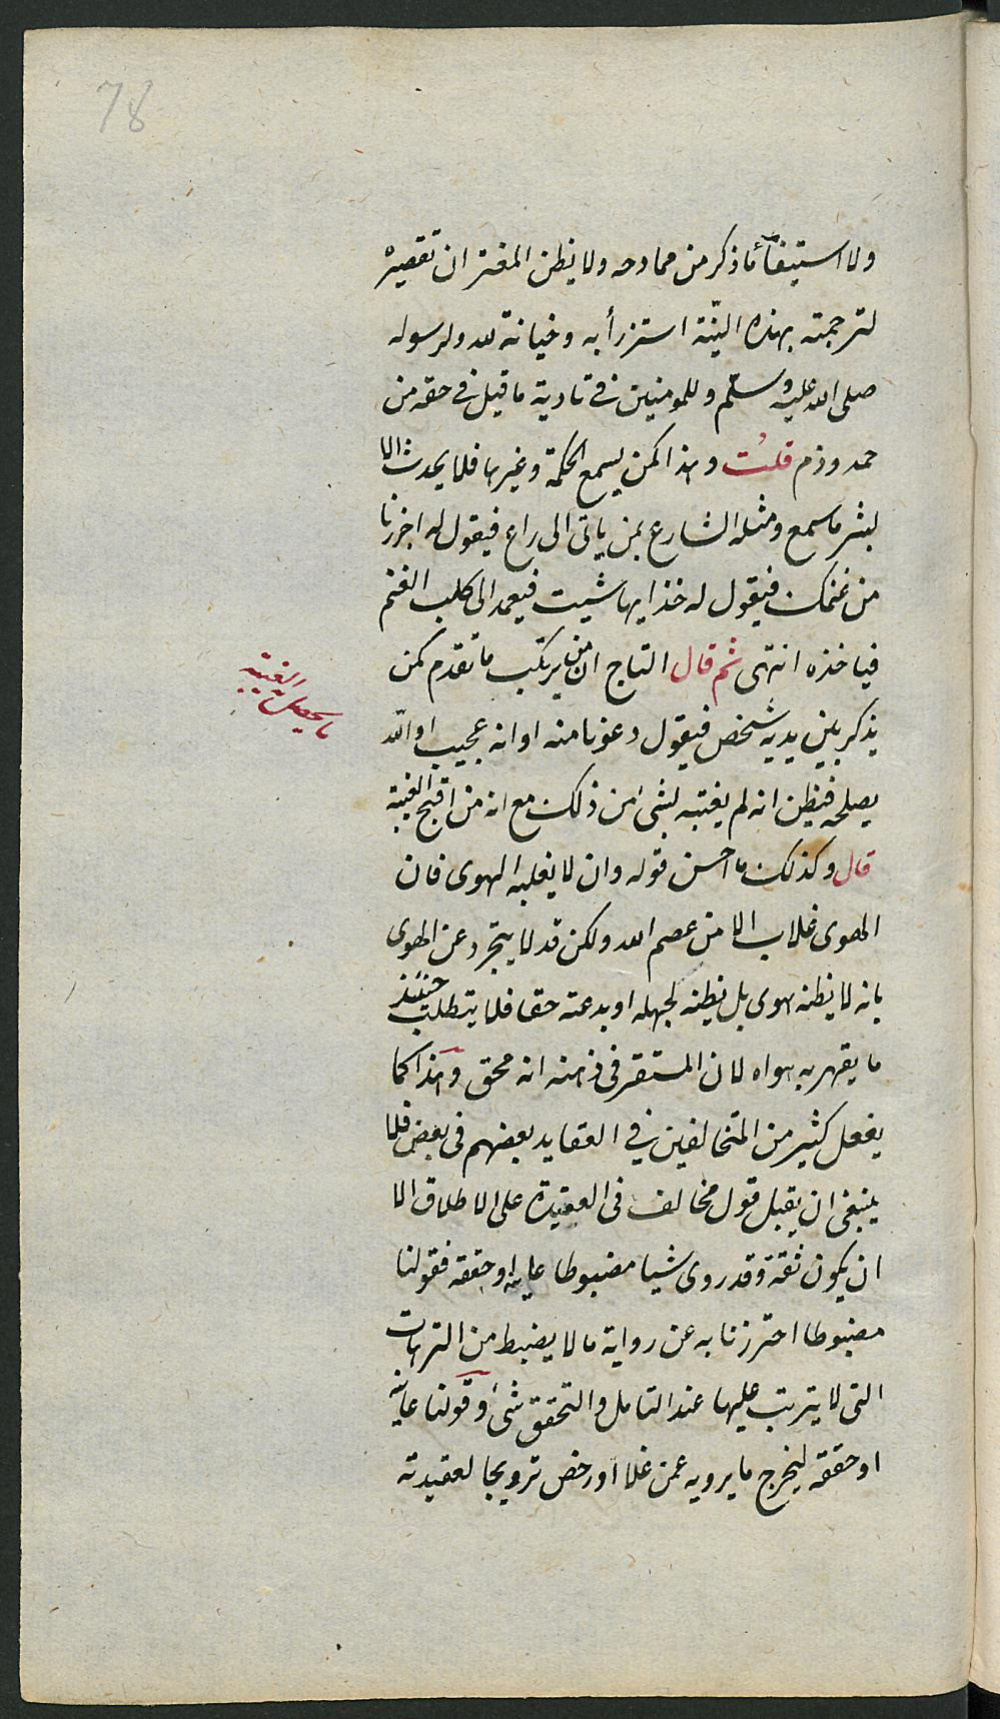 78
ولا استيفاء ما ذكر من ممادحه ولا يظن المغتر ان تقصيره
لترجمته بهذه النيّة استزرأ به وخيانة لله ولرسوله
صلى الله عليه وسلّم وللمومنين في تادية ما قيل في حقه من
حمد وذم قلت وهذا كمن يسمع الحكمة وغيرها فلا يحدث الا
بشر ما سمع ومثله الشارع بمن ياتى الى راع فيقول له اجزرنا
من غنمك فيقول له خذ ايها شيت فيعمد الى كلب الغنم
فياخذه انتهى ثم قال التاج ان من يرتكب ما تقدم كمن
يذكر بين يديه شخص فيقول دعونا منه او انه عجيب او الله
يصلحه فيظن انه لم يغتبه بشئ من ذلك مع انه من اقبح الغيبة
قال وكذلك ما احسن قوله وان لا يغلبه الهوى فان
الهوى غلاب الا من عصم الله ولكن قد لا يتجرد عن الهوى
بانه لا يظنه هوى بل يظنه لجهله او بدعته حقا فلا يتطلب حينئذ
ما يقهر به هواه لان المستقر فى ذهنه انه محق وهذا كما
يفعل كثير من المتخالفين في العقايد بعضهم فى بعض فلا
ينبغى ان يقبل قول مخالف فى العقيدة على الاطلاق الا
ان يكون ثقة وقد روى شيا مضبوطا عاينه او حققه فقولنا
مضبوطا احترزنا به عن رواية ما لا يضبط من الترهات
التى لا يترتب عليها عند التامل والتحقق شئ وقولنا عاينه
او حققه ليخرج ما يرويه عمن غلا او رخص ترويجا لعقيدته
الغيبة